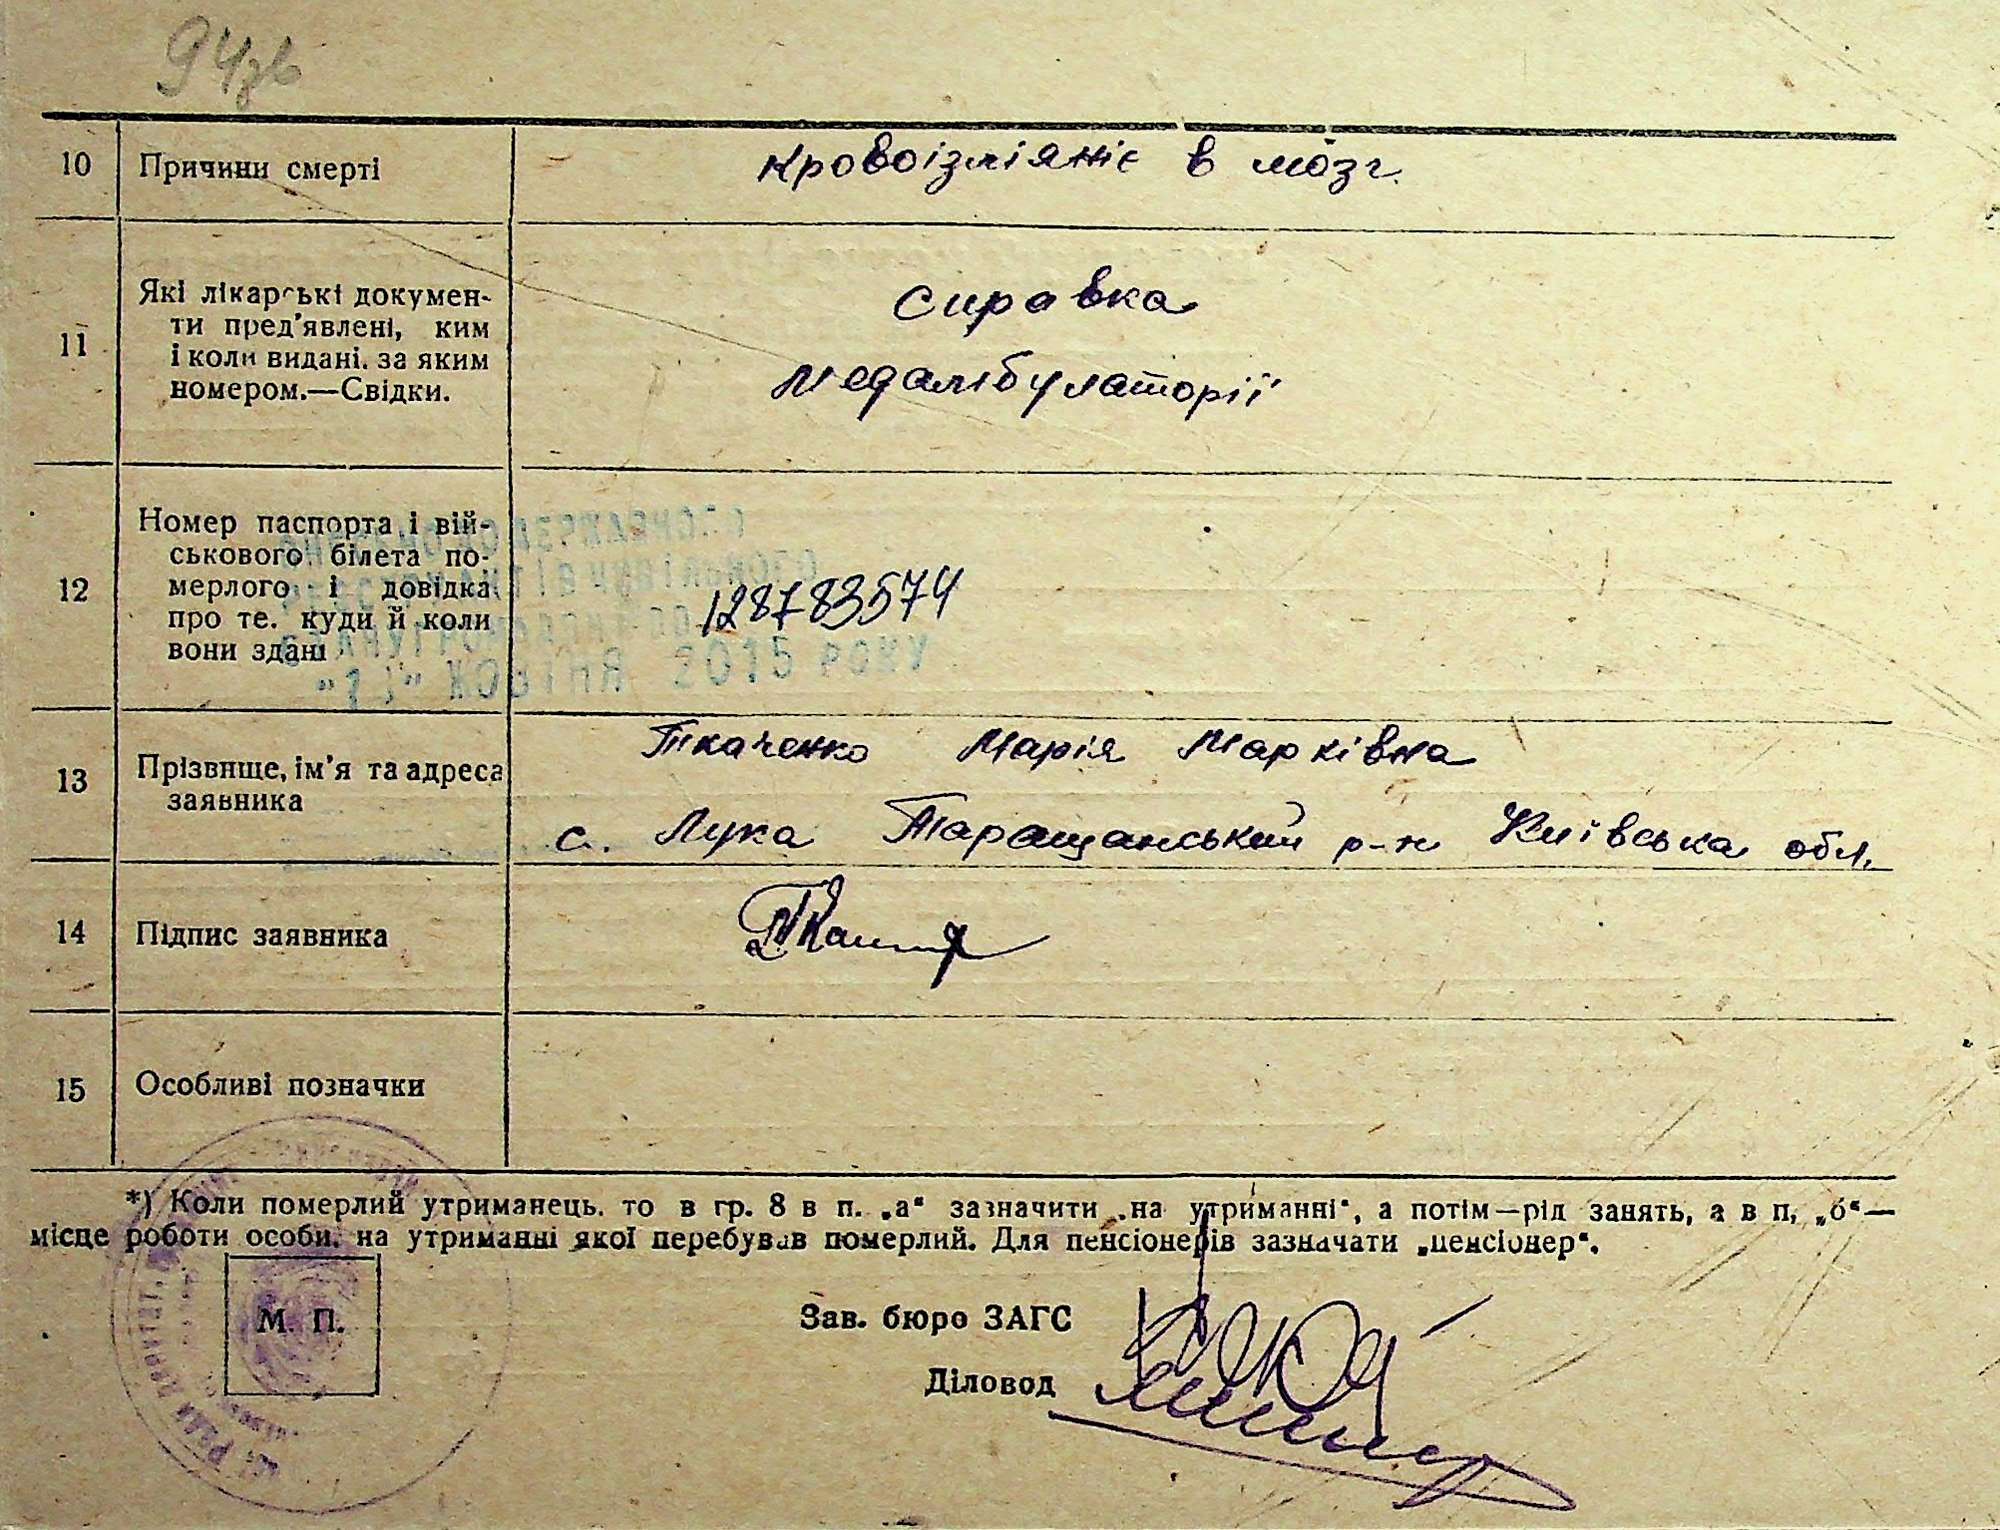 94зв
10 Причини смерті
кровоізліяніє в мозг.
11 Які лікарські докумен-
ти пред'явлені, ким
і коли видані. за яким
номером.—Свідки.
справка
медамбулаторії
12 Номер паспорта і вій-
ськового білета по-
мерлого і довідка
про те. куди й коли
вони здані
128783574
ДЕРЖАВНОГО
АКТІВ ЦИВІЛЬНОГО
СТАНУ ГРОМАДЯН
ЖОВТНЯ 2015 РОКУ
13 Прізвище, ім'я та адреса
заявника
Ткаченко Марія Марківна
с. Лука Таращанський р-н Київська обл.
14 Підпис заявника
15 Особливі позначки
*) Коли померлий утриманець. то в гр. 8 в п. „а“ зазначити „на утриманні“, а потім—рід занять, а в п, „б“—
місце роботи особи. на утриманні якої перебував померлий. Для пенсіонерів зазначати „пенсіонер“.
М. П.
Зав. бюро ЗАГС
Діловод